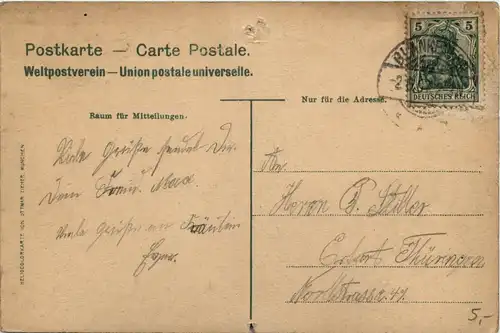 Postkarte — Carte Postale.
Weltpostverein — Union postale universelle.
5 5
DEUTSCHES REICH
Nur für die Adresse.
Raum für Mitteilungen.
Viele Grüße sendet Dir
Dein Freund Max.
Viele Grüße von Fräulein
An
Herrn
Erfurt Thüringen
Nordstrasse 47
HELIOCOLORKARTE VON OTTMAR ZIEHER, MÜNCHEN
5,-